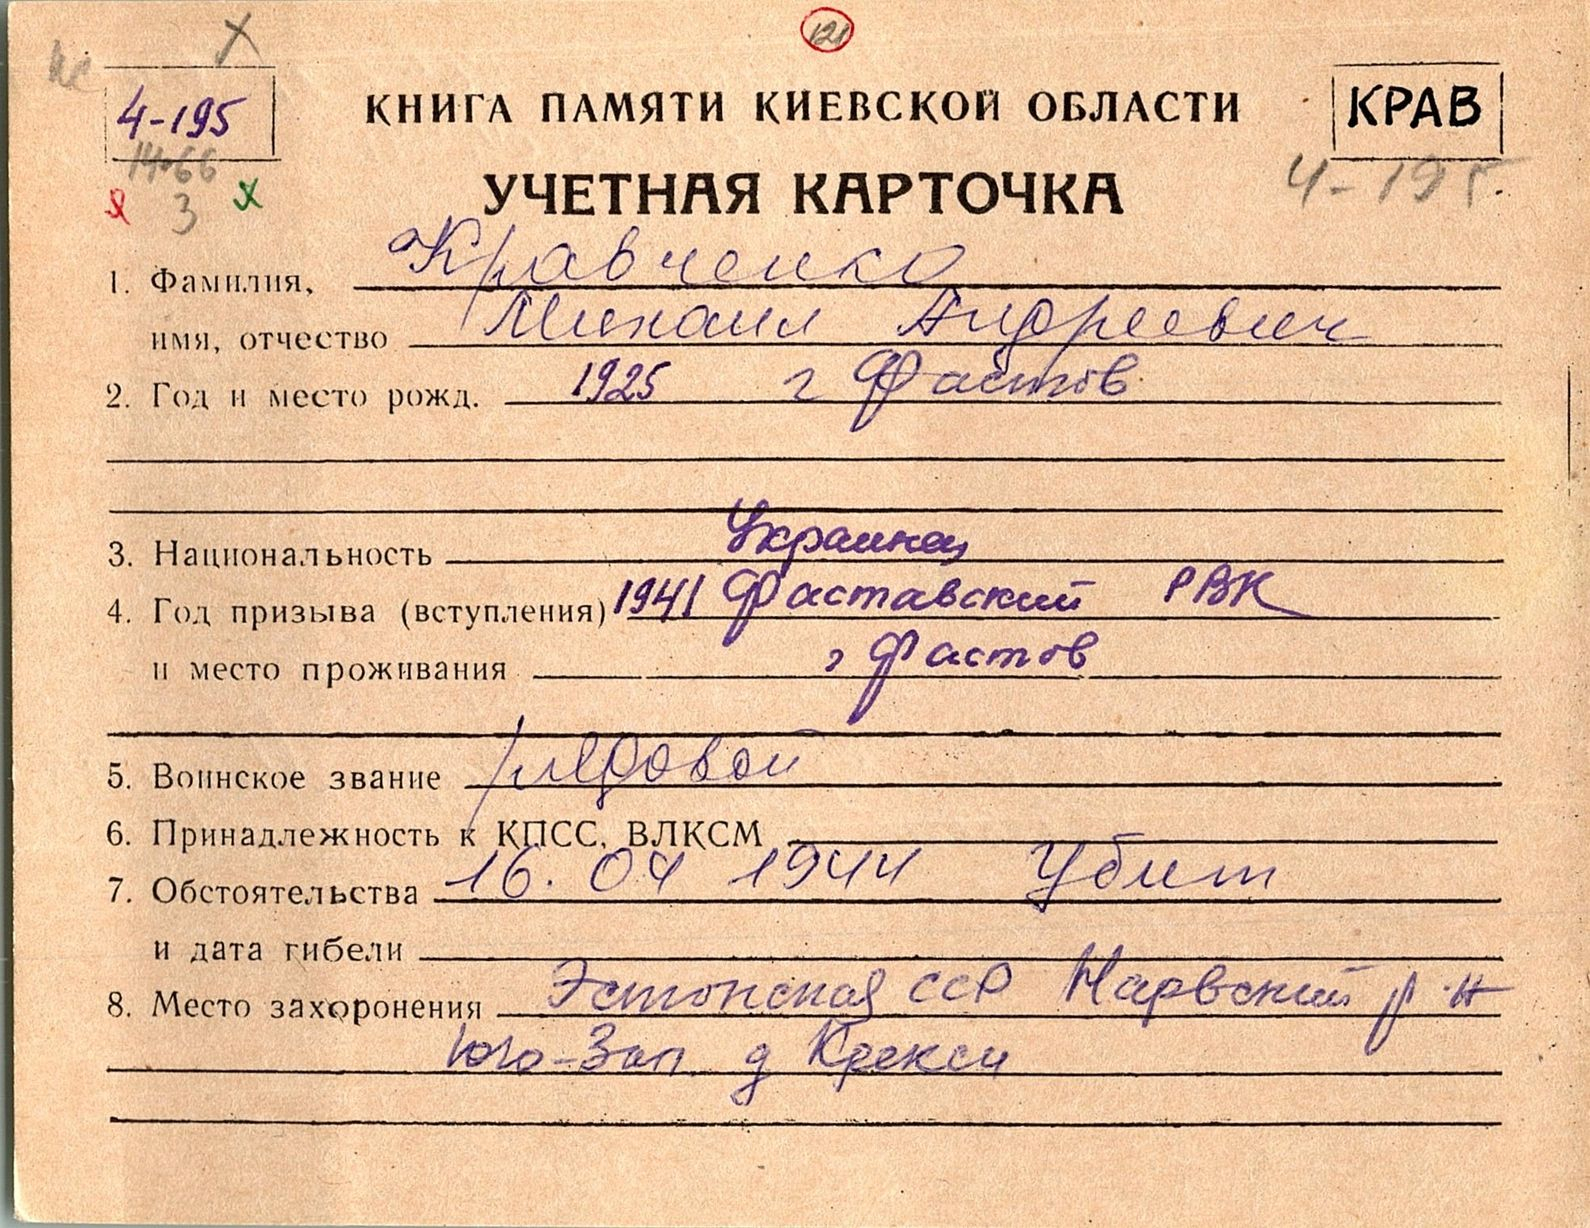 121
4-195
КНИГА ПАМЯТИ КИЕВСКОЙ ОБЛАСТИ
КРАВ
14-66
4-195.
3
УЧЕТНАЯ КАРТОЧКА
1. Фамилия, Кравченко
имя, отчество Михаил Андреевич
2. Год и место рожд. 1925 г Фастов
3. Национальность Украинец
4. Год призыва (вступления) 1941 Фаставский РВК
и место проживания г Фастов
5. Воинское звание рядовой
6. Принадлежность к КПСС, ВЛКСМ
7. Обстоятельства 16. 04 1944 Убит
и дата гибели
8. Место захоронения Эстонская ССР Нарвский р-н
Юго-Зап. д Крекси